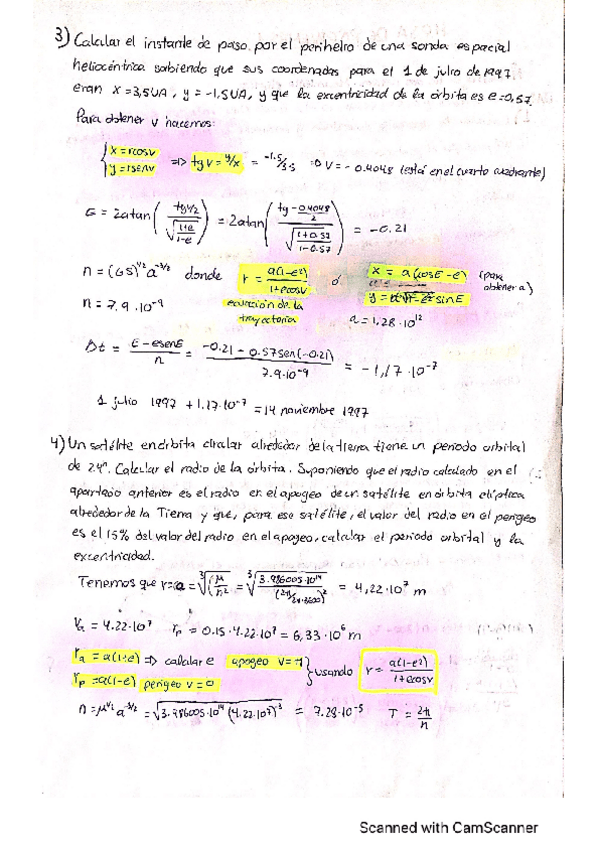 3) Calcular el instante de paso por el perihelio de una sonda espacial
heliocéntrica sabiendo que sus coordenadas para el 1 de julio de 1997
eran x = 3,5UA, y = -1,5UA, y que la excentricidad de la órbita es e=0,57
Para obtener v hacemos:
{ x = rcosv
y = rsenv => tgv = y/x = -1.5/3.5 => v = -0.4048 (está en el cuarto cuadrante)
E = 2atan( tgv/2 / √(1+e/1-e) ) = 2atan( tg -0.4048/2 / √(1+0.57/1-0.57) ) = -0.21
n = (GS)^1/2 a^-3/2 donde r = a(1-e²)/1+ecosv ó x = a(cosE-e) (para obtener a)
n = 7.9·10^-9 ecuación de la trayectoria a = 1,28·10^12
Δt = E-esenE/n = -0.21-0.57sen(-0.21)/7.9·10^-9 = -1,17·10^-7
1 julio 1997 + 1.17·10^-7 = 14 noviembre 1997
4) Un satélite en órbita circular alrededor de la tierra tiene un periodo orbital
de 24h. Calcular el radio de la órbita. Suponiendo que el radio calculado en el
apartado anterior es el radio en el apogeo de un satélite en órbita elíptica
alrededor de la Tierra y que, para ese satélite, el valor del radio en el perigeo
es el 15% del valor del radio en el apogeo, calcular el periodo orbital y la
excentricidad.
Tenemos que r=a = ³√(μ/n²) = ³√(3.986005·10^14/(2π/24·3600)²) = 4,22·10^7 m
ra = 4.22·10^7 rp = 0.15·4.22·10^7 = 6,33·10^6 m
ra = a(1+e) => calcular e apogeo v=π
rp = a(1-e) perigeo v=0 } usando r = a(1-e²)/1+ecosv
n = μ^1/2 a^-3/2 = √3.986005·10^14 (4.22·10^7)^3 = 7.28·10^-5 T = 2π/n
Scanned with CamScanner